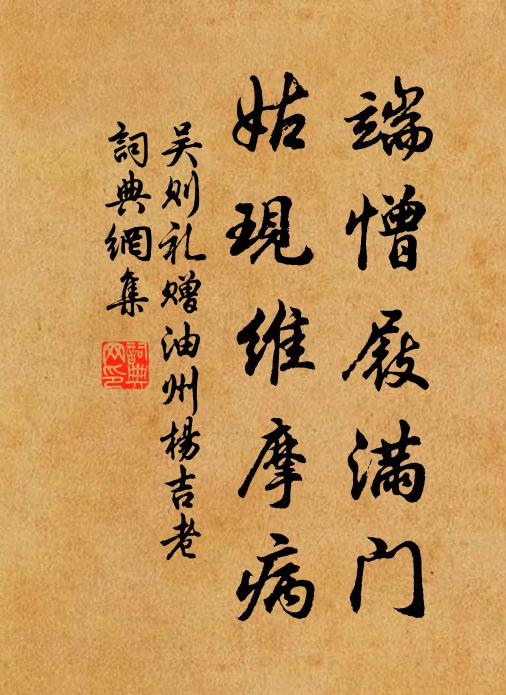 端憎屐满门
姑現维摩病
吴则礼赠油州楊吉老
詞典網集
詞典
网印